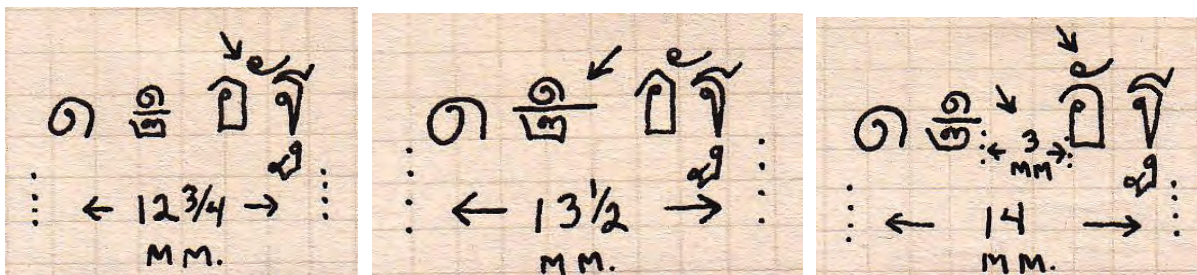 ๑ ๑/๒ อัฐ
← 12 3/4 →
mm.
๑ ๑/๒ อัฐ
← 13 1/2 →
mm.
๑ ๑/๒ อัฐ
← 3 →
mm
← 14 →
mm.